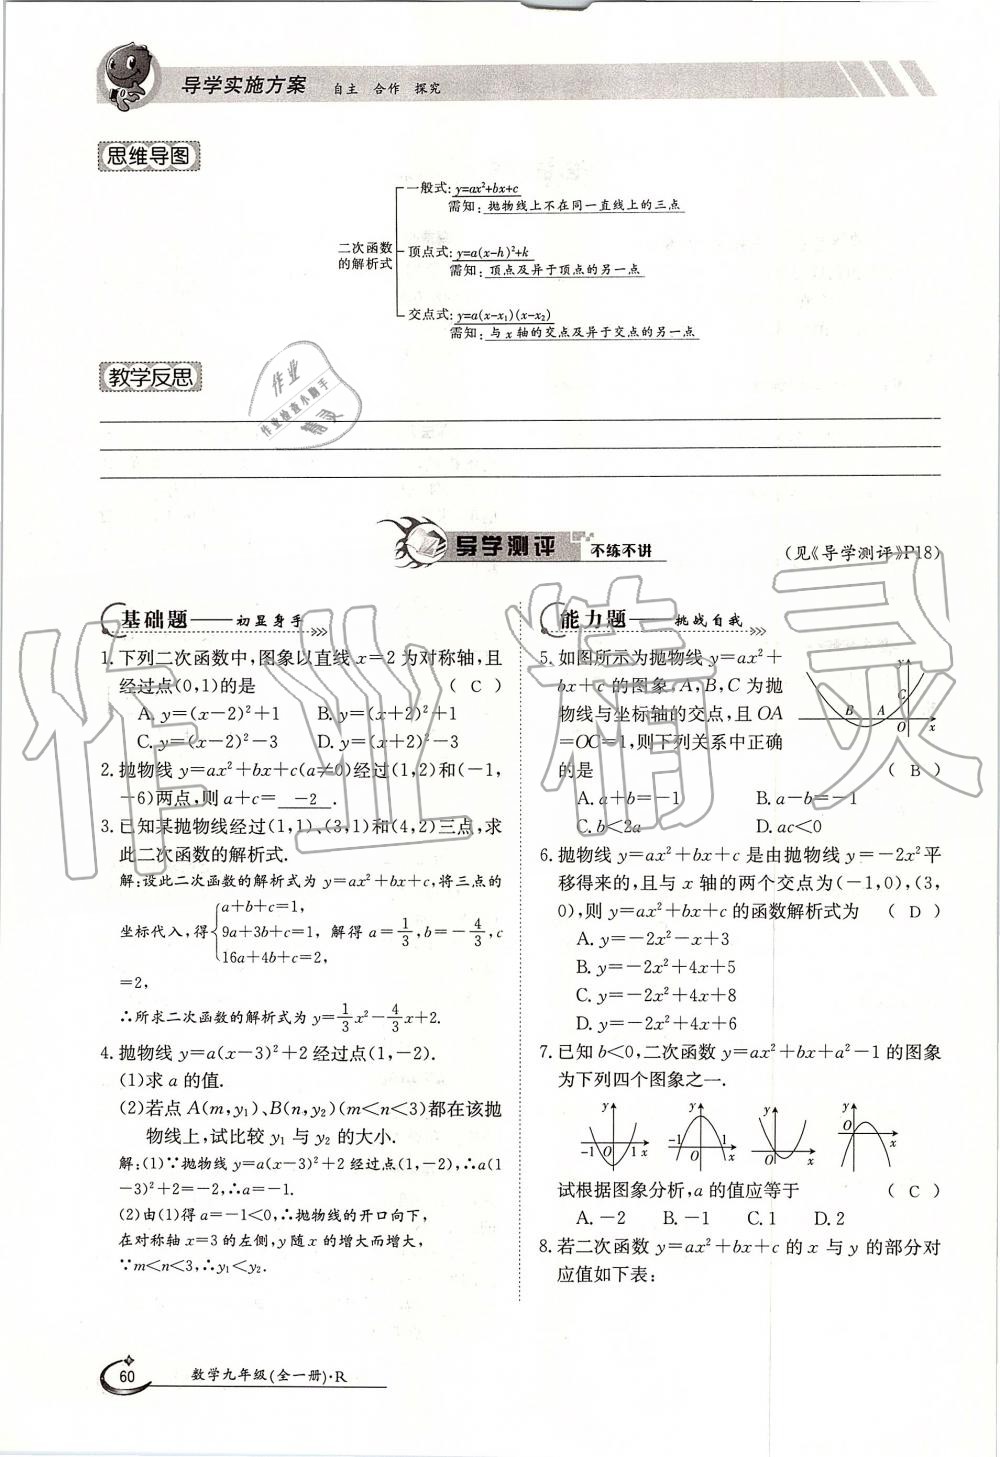 导学实施方案 自主 合作 探究
思维导图
一般式:y=ax²+bx+c
需知:抛物线上不在同一直线上的三点
二次函数
的解析式
顶点式:y=a(x-h)²+k
需知:顶点及异于顶点的另一点
交点式:y=a(x-x₁)(x-x₂)
需知:与x轴的交点及异于交点的另一点
教学反思
作业
作业检查小助手
精灵
导学测评 不练不讲
(见《导学测评》P18)
基础题——初显身手
1. 下列二次函数中,图象以直线x=2为对称轴,且
经过点(0,1)的是 ( C )
A. y=(x-2)²+1 B. y=(x+2)²+1
C. y=(x-2)²-3 D. y=(x+2)²-3
2. 抛物线y=ax²+bx+c(a≠0)经过(1,2)和(-1,
-6)两点,则a+c= -2 .
3. 已知某抛物线经过(1,1)、(3,1)和(4,2)三点,求
此二次函数的解析式.
解:设此二次函数的解析式为y=ax²+bx+c,将三点的
坐标代入,得{a+b+c=1, 9a+3b+c=1, 16a+4b+c=2, 解得a=1/3,b=-4/3,c
=2,
∴所求二次函数的解析式为y=1/3x²-4/3x+2.
4. 抛物线y=a(x-3)²+2经过点(1,-2).
(1)求a的值.
(2)若点A(m,y₁)、B(n,y₂)(m<n<3)都在该抛
物线上,试比较y₁与y₂的大小.
解:(1)∵抛物线y=a(x-3)²+2经过点(1,-2),∴a(1
-3)²+2=-2,∴a=-1.
(2)由(1)得a=-1<0,∴抛物线的开口向下,
在对称轴x=3的左侧,y随x的增大而增大,
∵m<n<3,∴y₁<y₂.
能力题——挑战自我
5. 如图所示为抛物线y=ax²+
bx+c的图象,A,B,C为抛
物线与坐标轴的交点,且OA
=OC=1,则下列关系中正确
的是 ( B )
y
C
B A O x
A. a+b=-1 B. a-b=-1
C. b<2a D. ac<0
6. 抛物线y=ax²+bx+c是由抛物线y=-2x²平
移得来的,且与x轴的两个交点为(-1,0),(3,
0),则y=ax²+bx+c的函数解析式为 ( D )
A. y=-2x²-x+3
B. y=-2x²+4x+5
C. y=-2x²+4x+8
D. y=-2x²+4x+6
7. 已知b<0,二次函数y=ax²+bx+a²-1的图象
为下列四个图象之一.
y y y y
-1 O 1 x -1 O 1 x O x O x
试根据图象分析,a的值应等于 ( C )
A. -2 B. -1 C. 1 D. 2
8. 若二次函数y=ax²+bx+c的x与y的部分对
应值如下表:
60 数学九年级(全一册)·R
作业精灵